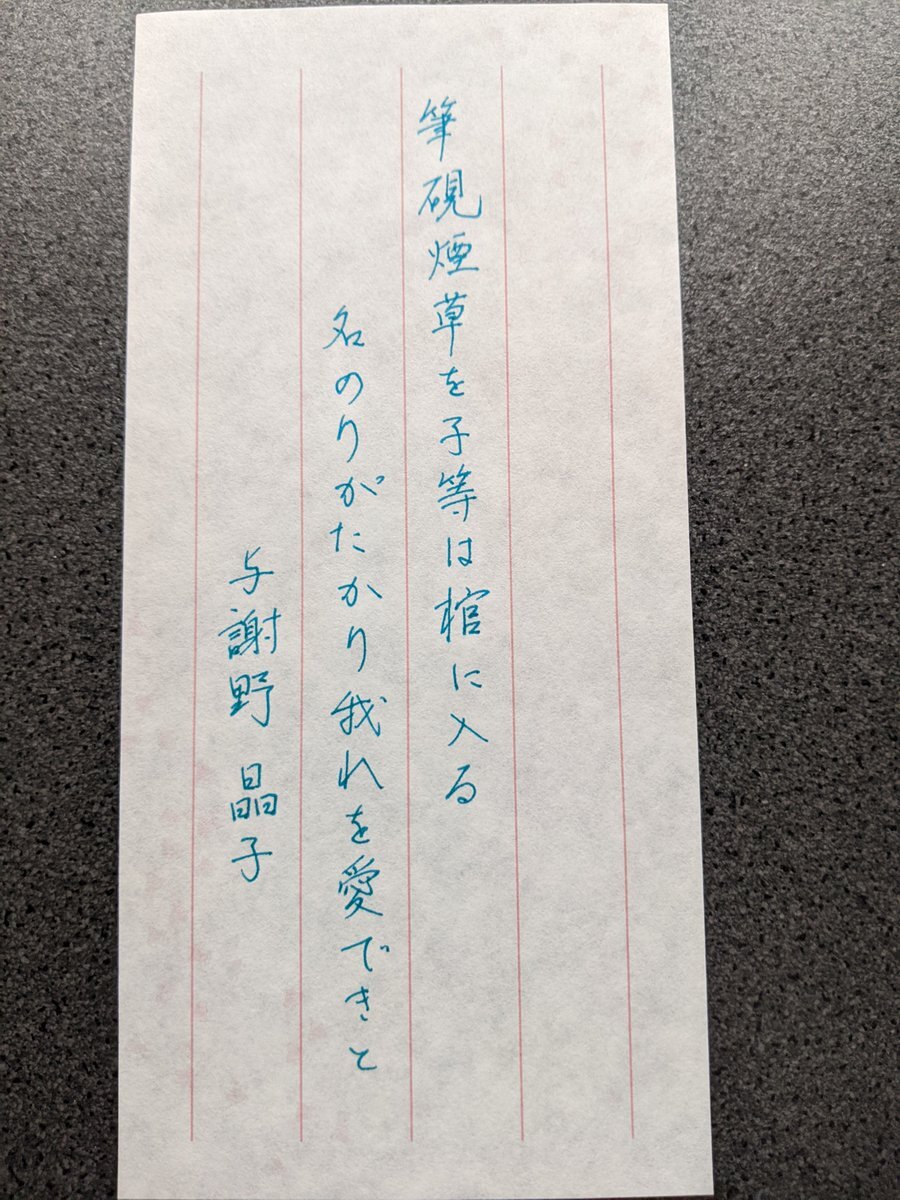 筆硯煙草を子等は棺に入る
名のりがたかり我れを愛できと
与謝野 晶子